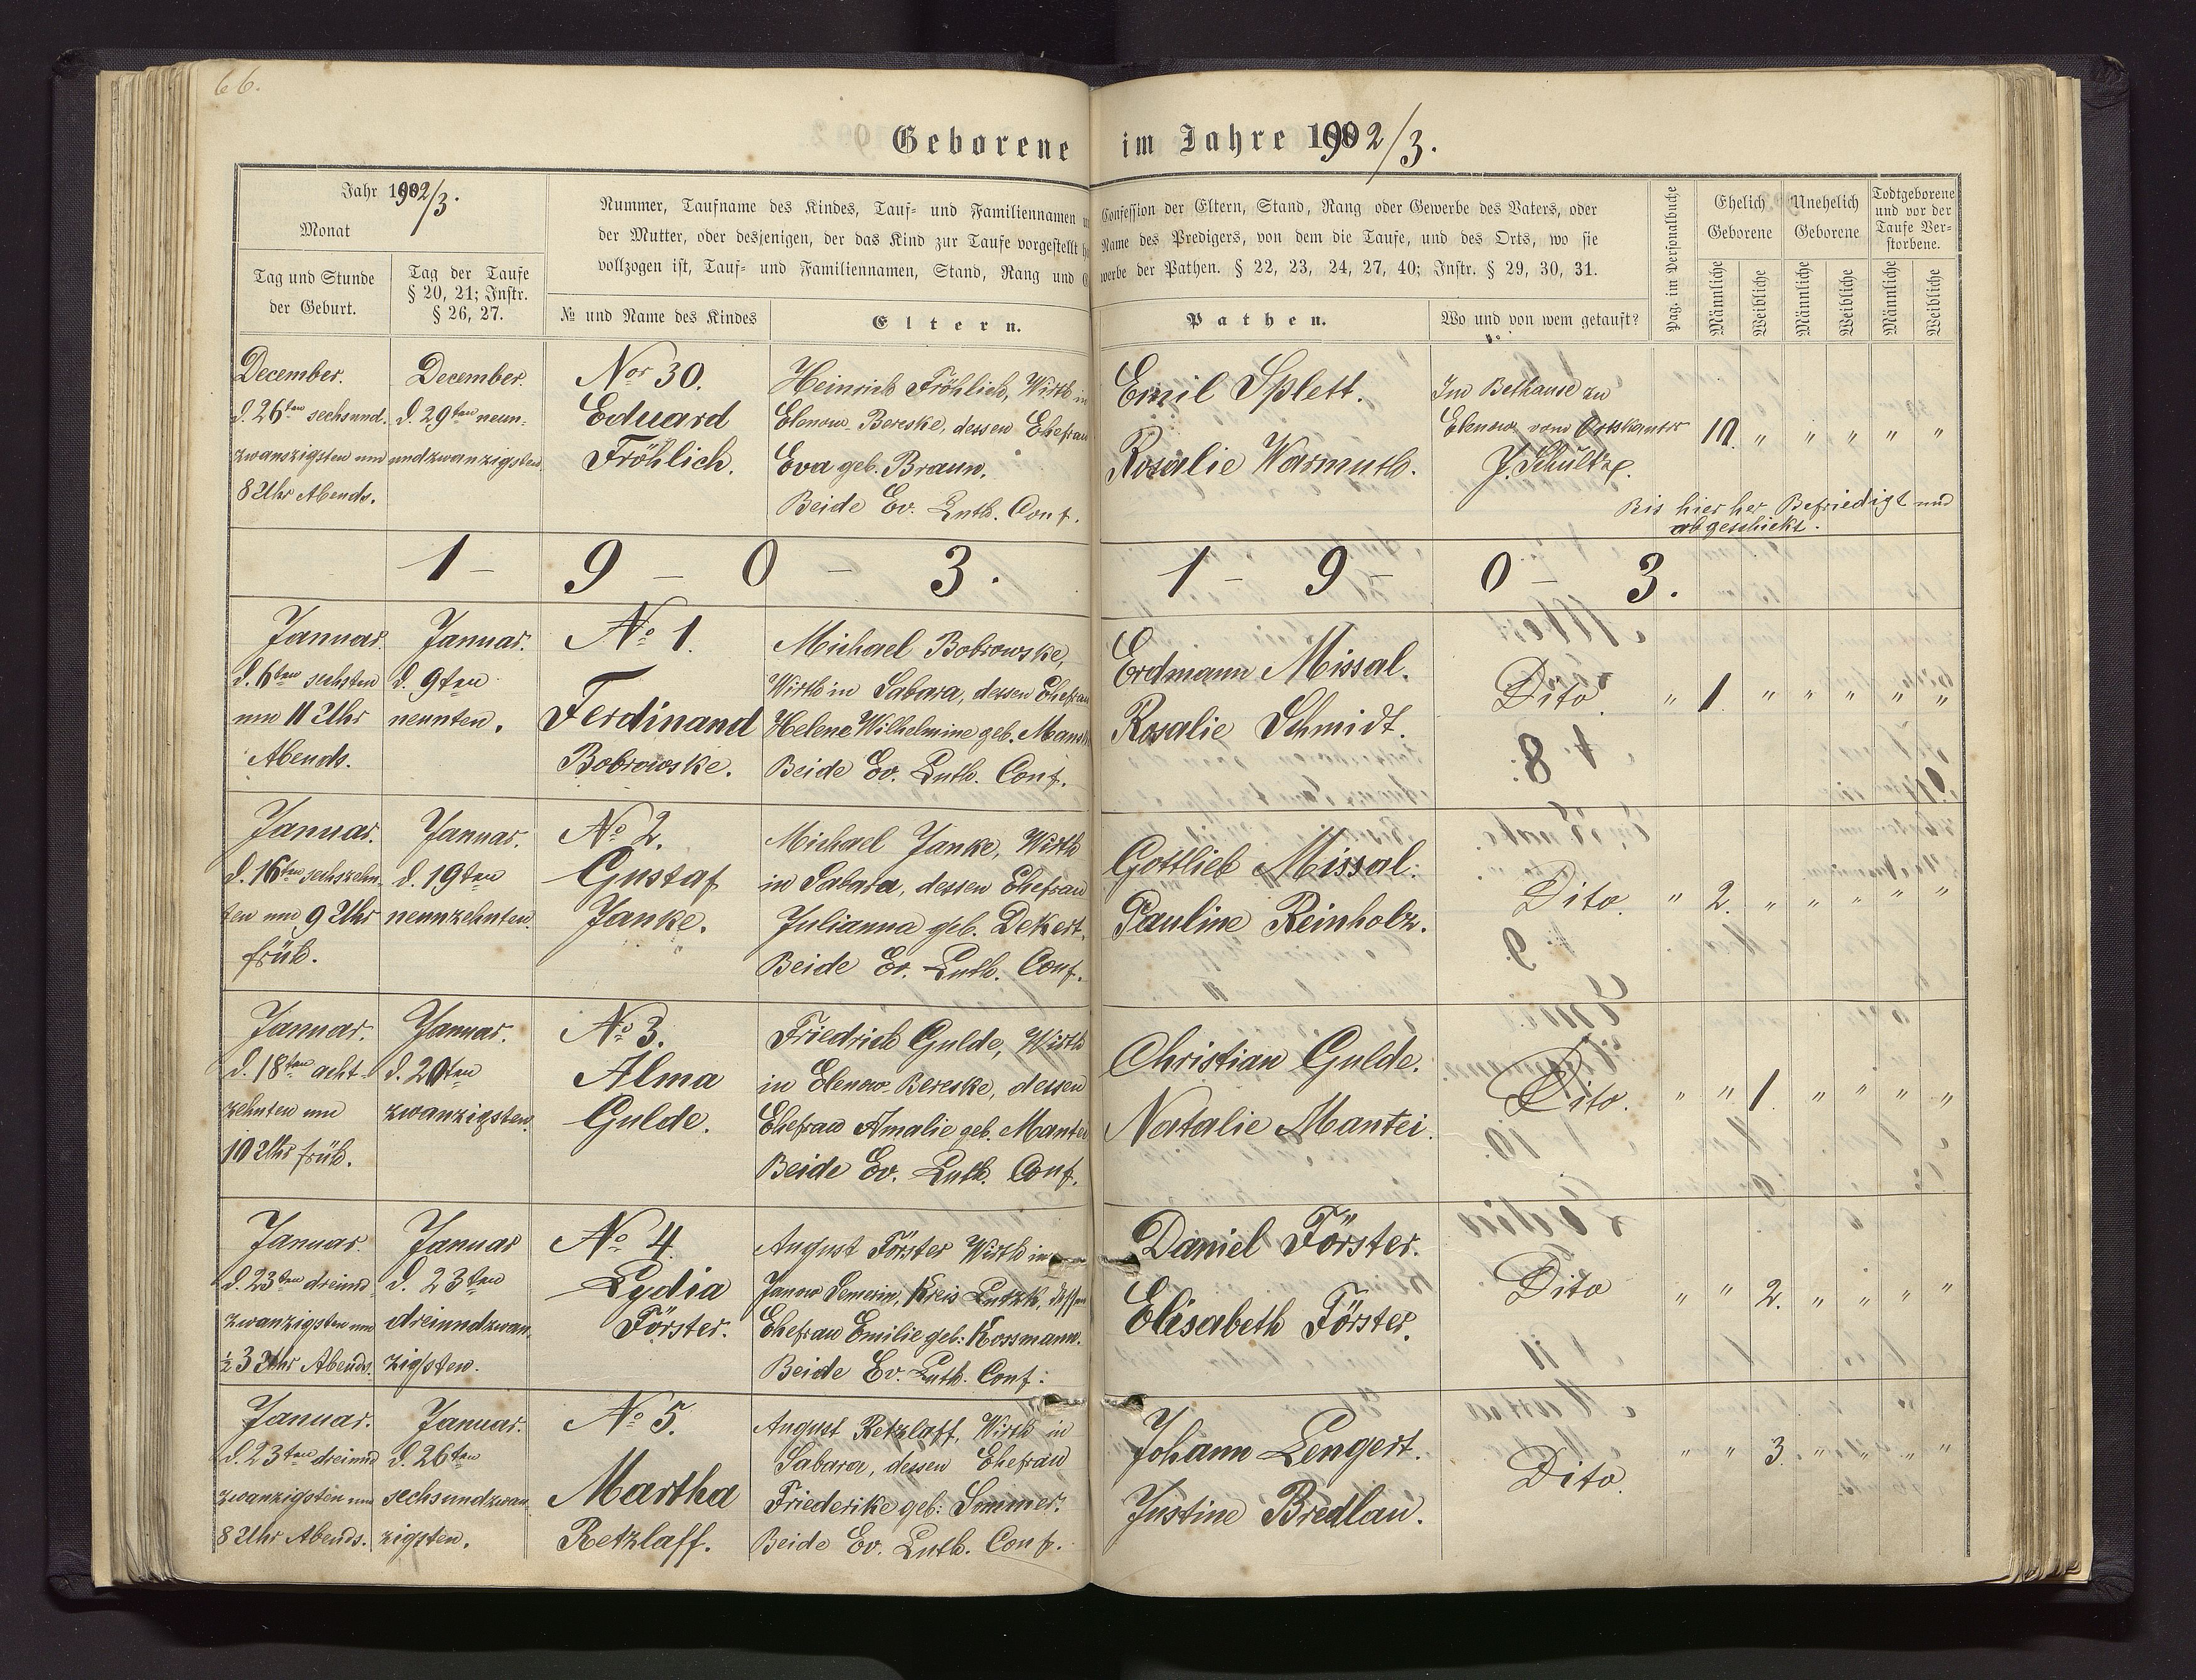 66.
Geborene im Jahre 1902/3.
Jahr 1902/3.
Monat
Tag und Stunde
der Geburt.
Tag der Taufe
§ 20, 21; Instr.
§ 26, 27.
Nummer, Taufname des Kindes, Tauf- und Familiennamen
der Mutter, oder desjenigen, der das Kind zur Taufe vorgestellt
vollzogen ist, Tauf- und Familiennamen, Stand, Rang und
№ und Name des Kindes
Eltern.
Confession der Eltern, Stand, Rang oder Gewerbe des Vaters, oder
Name des Predigers, von dem die Taufe, und des Orts, wo sie
werbe der Pathen. § 22, 23, 24, 27, 40; Instr. § 29, 30, 31.
Pathen.
Wo und von wem getauft?
Pag. im Personalbuche
Ehelich
Geborene
Unehelich
Geborene
Todtgeborene
und vor der
Taufe Ver-
storbene.
Männliche
Weibliche
Männliche
Weibliche
Männliche
Weibliche
December.
d. 26ten sechsund-
zwanzigsten um
8 Uhr Abends.
December.
d. 29ten neun-
undzwanzigsten
Nor 30.
Eduard
Fröhlich.
Heinrich Fröhlich, Wirth in
Elenow-Bereske, dessen Ehefrau
Eva geb. Braun.
Beide Ev. Luth. Conf.
Emil Splett.
Rosalie Warmuth.
Im Bethause zu
Elenow vom Ortskantor
J. Schultz.
17. " " " " "
Bis hierher Befriedigt und
abgeschickt.
1 - 9 - 0 - 3. 1 - 9 - 0 - 3.
Januar.
d. 6ten sechsten
um 11 Uhr
Abends.
Januar.
d. 9ten
neunten.
No 1.
Ferdinand
Bobrowske.
Michael Bobrowske,
Wirth in Sabara, dessen Ehefrau
Helene Wilhelmine geb. Mansk
Beide Ev. Luth. Conf.
Erdmann Missal.
Rosalie Schmidt.
Dito.
" 1. " " " " "
Januar.
d. 16ten sechszehn-
ten um 9 Uhr
früh.
Januar.
d. 19ten
neunzehnten.
No 2.
Gustaf
Janke.
Michael Janke, Wirth
in Sabara, dessen Ehefrau
Julianna geb. Dekert.
Beide Ev. Luth. Conf.
Gottlieb Missal.
Pauline Reinholz.
Dito.
" 2. " " " " "
Januar.
d. 18ten acht-
zehnten um
10 Uhr früh.
Januar.
d. 20ten
zwanzigsten.
No 3.
Alma
Gulde.
Friedrich Gulde, Wirth
in Elenow-Bereske, dessen
Ehefrau Amalie geb. Mantei
Beide Ev. Luth. Conf.
Christian Gulde.
Natalie Mantei.
Dito.
" " 1. " " " "
Januar.
d. 23ten dreiund
zwanzigsten um
½3 Uhr Abends.
Januar
d. 23ten
dreiundzwan-
zigsten.
No 4.
Lydia
Förster.
August Förster Wirth in
Janow Semerin, Kreis Lutzk, dessen
Ehefrau Emilie geb: Kossmann.
Beide Ev. Luth. Conf:
Daniel Förster.
Elisabeth Förster.
Dito
" " 2. " " " "
Januar.
d. 23ten dreiund
zwanzigsten um
8 Uhr Abends.
Januar.
d. 26ten
sechsundzwan-
zigsten.
No 5.
Martha
Retzlaff.
August Retzlaff, Wirth in
Sabara, dessen Ehefrau
Friederike geb:
Beide Ev. Luth. Conf.
Johann Lengert.
Justine Bredlau.
Dito.
" " 3. " " " "